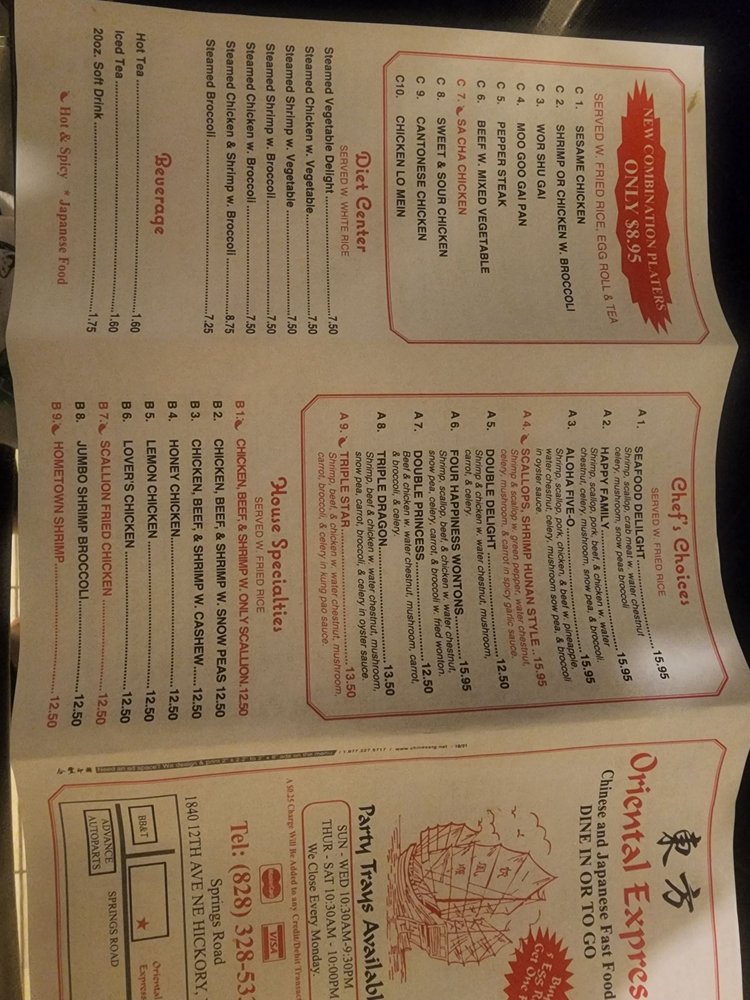 NEW COMBINATION PLATERS
ONLY $8.95
SERVED W. FRIED RICE, EGG ROLL & TEA
C 1. SESAME CHICKEN
C 2. SHRIMP OR CHICKEN W. BROCCOLI
C 3. WOR SHU GAI
C 4. MOO GOO GAI PAN
C 5. PEPPER STEAK
C 6. BEEF W. MIXED VEGETABLE
C 7. SA CHA CHICKEN
C 8. SWEET & SOUR CHICKEN
C 9. CANTONESE CHICKEN
C10. CHICKEN LO MEIN
Diet Center
SERVED W. WHITE RICE
Steamed Vegetable Delight 7.50
Steamed Chicken w. Vegetable 7.50
Steamed Shrimp w. Vegetable 7.50
Steamed Shrimp w. Broccoli 7.50
Steamed Chicken w. Broccoli 7.50
Steamed Chicken & Shrimp w. Broccoli 8.75
Steamed Broccoli 7.25
Beverage
Hot Tea 1.60
Iced Tea 1.60
20oz. Soft Drink 1.75
Hot & Spicy * Japanese Food
Chef's Choices
SERVED W. FRIED RICE
A 1. SEAFOOD DELIGHT 15.95
Shrimp, scallop, crab meat w. water chestnut
celery, mushroom, snow peas broccoli
A 2. HAPPY FAMILY 15.95
Shrimp, scallop, pork, beef, & chicken w. water
chestnut, celery, mushroom, snow pea, & broccoli.
A 3. ALOHA FIVE-O 15.95
Shrimp, scallop, pork, chicken, & beef w. pineapple,
water chestnut, celery, mushroom sow pea, & broccoli
in oyster sauce.
A 4. SCALLOPS, SHRIMP HUNAN STYLE 15.95
Shrimp & scallop w. green pepper, water chestnut,
celery, mushroom, & carrot in spicy garlic sauce.
A 5. DOUBLE DELIGHT 12.50
Shrimp & chicken w. water chestnut, mushroom,
carrot, & celery.
A 6. FOUR HAPPINESS WONTONS 15.95
Shrimp, scallop, beef, & chicken w. water chestnut,
snow pea, celery, carrot, & broccoli w. fried wonton.
A 7. DOUBLE PRINCESS 12.50
Beef & chicken w. water chestnut, mushroom, carrot,
& broccoli, & celery.
A 8. TRIPLE DRAGON 13.50
Shrimp, beef & chicken w. water chestnut, mushroom,
snow pea, carrot, broccoli, & celery in oyster sauce.
A 9. TRIPLE STAR 13.50
Shrimp, beef, & chicken w. water chestnut, mushroom,
carrot, broccoli, & celery in kung pao sauce.
House Specialties
SERVED W. FRIED RICE
B 1. CHICKEN, BEEF, & SHRIMP W. ONLY SCALLION. 12.50
B 2. CHICKEN, BEEF, & SHRIMP W. SNOW PEAS 12.50
B 3. CHICKEN, BEEF, & SHRIMP W. CASHEW 12.50
B 4. HONEY CHICKEN 12.50
B 5. LEMON CHICKEN 12.50
B 6. LOVER'S CHICKEN 12.50
B 7. SCALLION FRIED CHICKEN 12.50
B 8. JUMBO SHRIMP BROCCOLI 12.50
B 9. HOMETOWN SHRIMP 12.50
東方
Oriental Expres
Chinese and Japanese Fast Food
DINE IN OR TO GO
Party Trays Availabl
SUN - WED 10:30AM-9:30PM
THUR - SAT 10:30AM - 10:00PM
We Close Every Monday.
A $0.25 Charge Will Be Added to any Credit/Debit Transac
MasterCard
VISA
Tel: (828) 328-53
Springs Road
1840 12TH AVE NE HICKORY,
BB&T
ADVANCE
AUTOPARTS
SPRINGS ROAD
Oriental
Expres